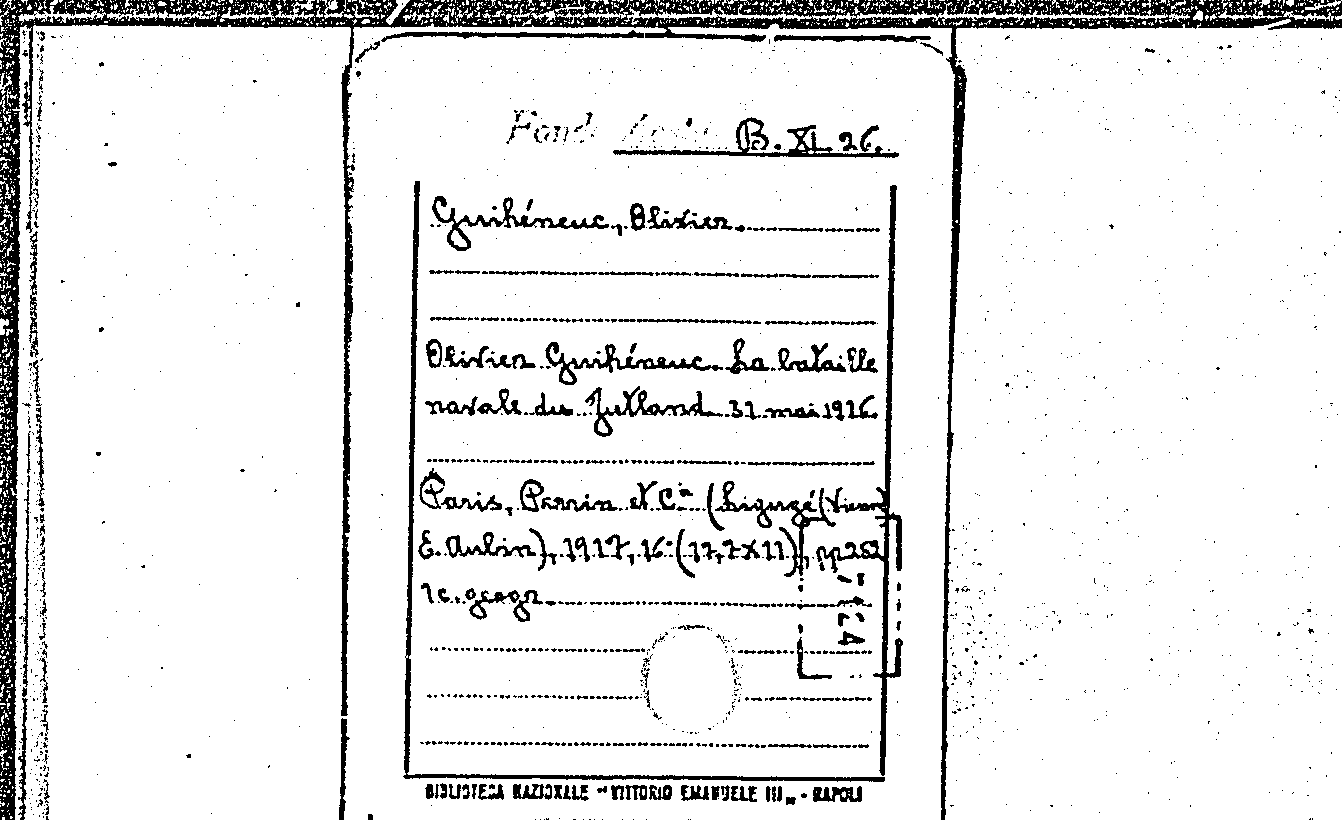 Fondo B. XI. 26.
Guihéneuc, Olivier.
Olivier Guihéneuc. La bataille
navale du Jutland. 31 mai 1916.
Paris, Perrin et C.ie (Ligugé (Vienne)
E. Aubin), 1917, 16° (17,7×11), pp 252
1 c. geogr.
BIBLIOTECA NAZIONALE "VITTORIO EMANUELE III„ - NAPOLI